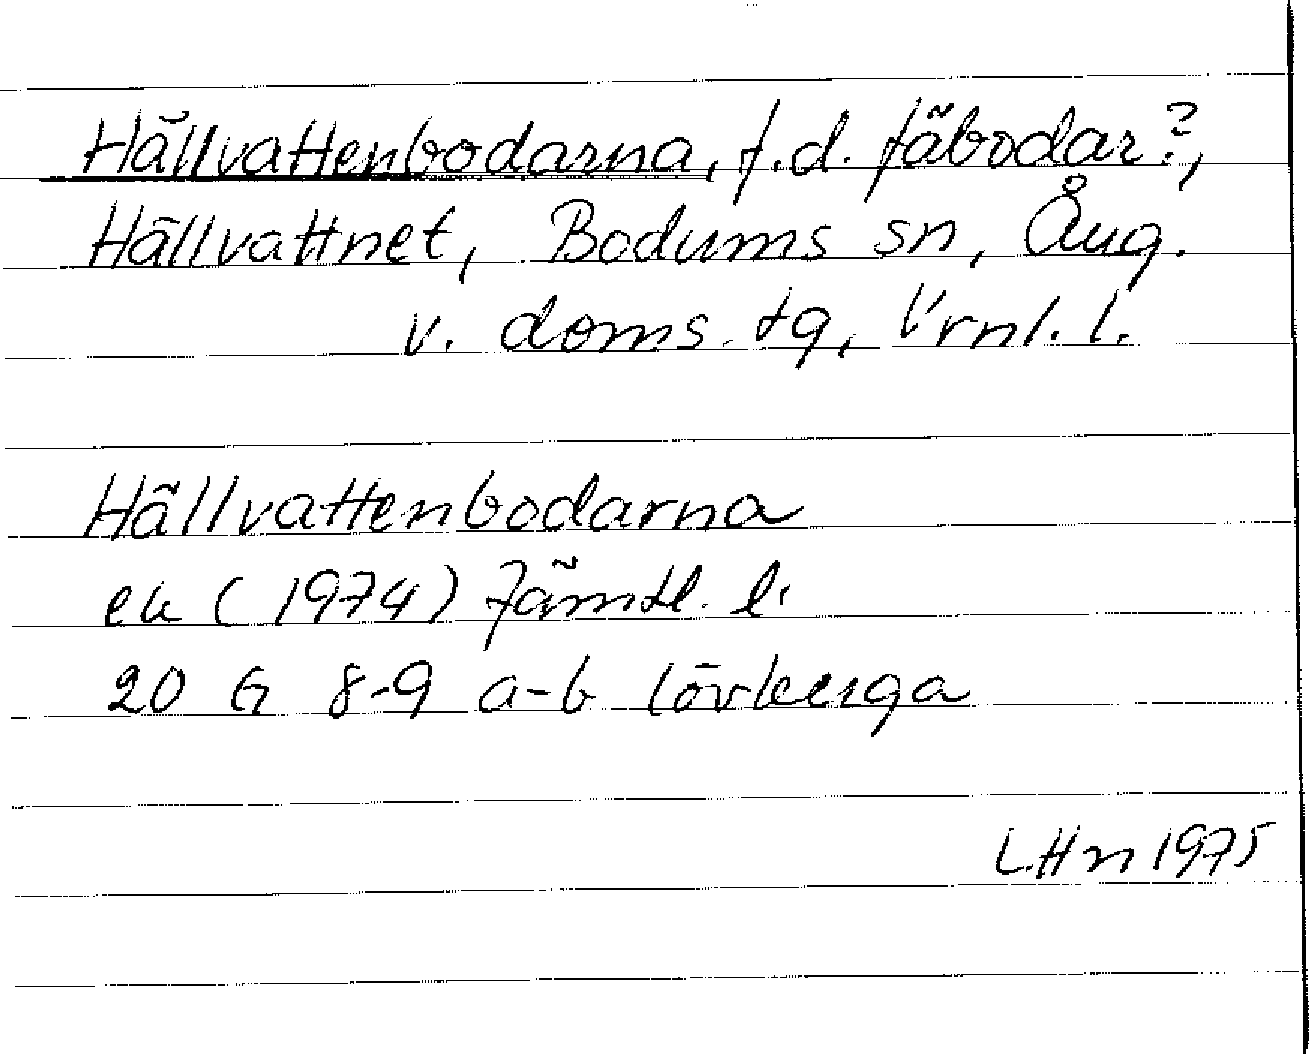 Hällvattenbodarna, f.d. fäbodar?,
Hällvattnet, Bodums sn, Ång.
v. doms. tg, Vrnl. l.
Hällvattenbodarna
ek (1974) Jämtl. l.
20 G 8-9 a-b Lövberga
L.Hn 1975